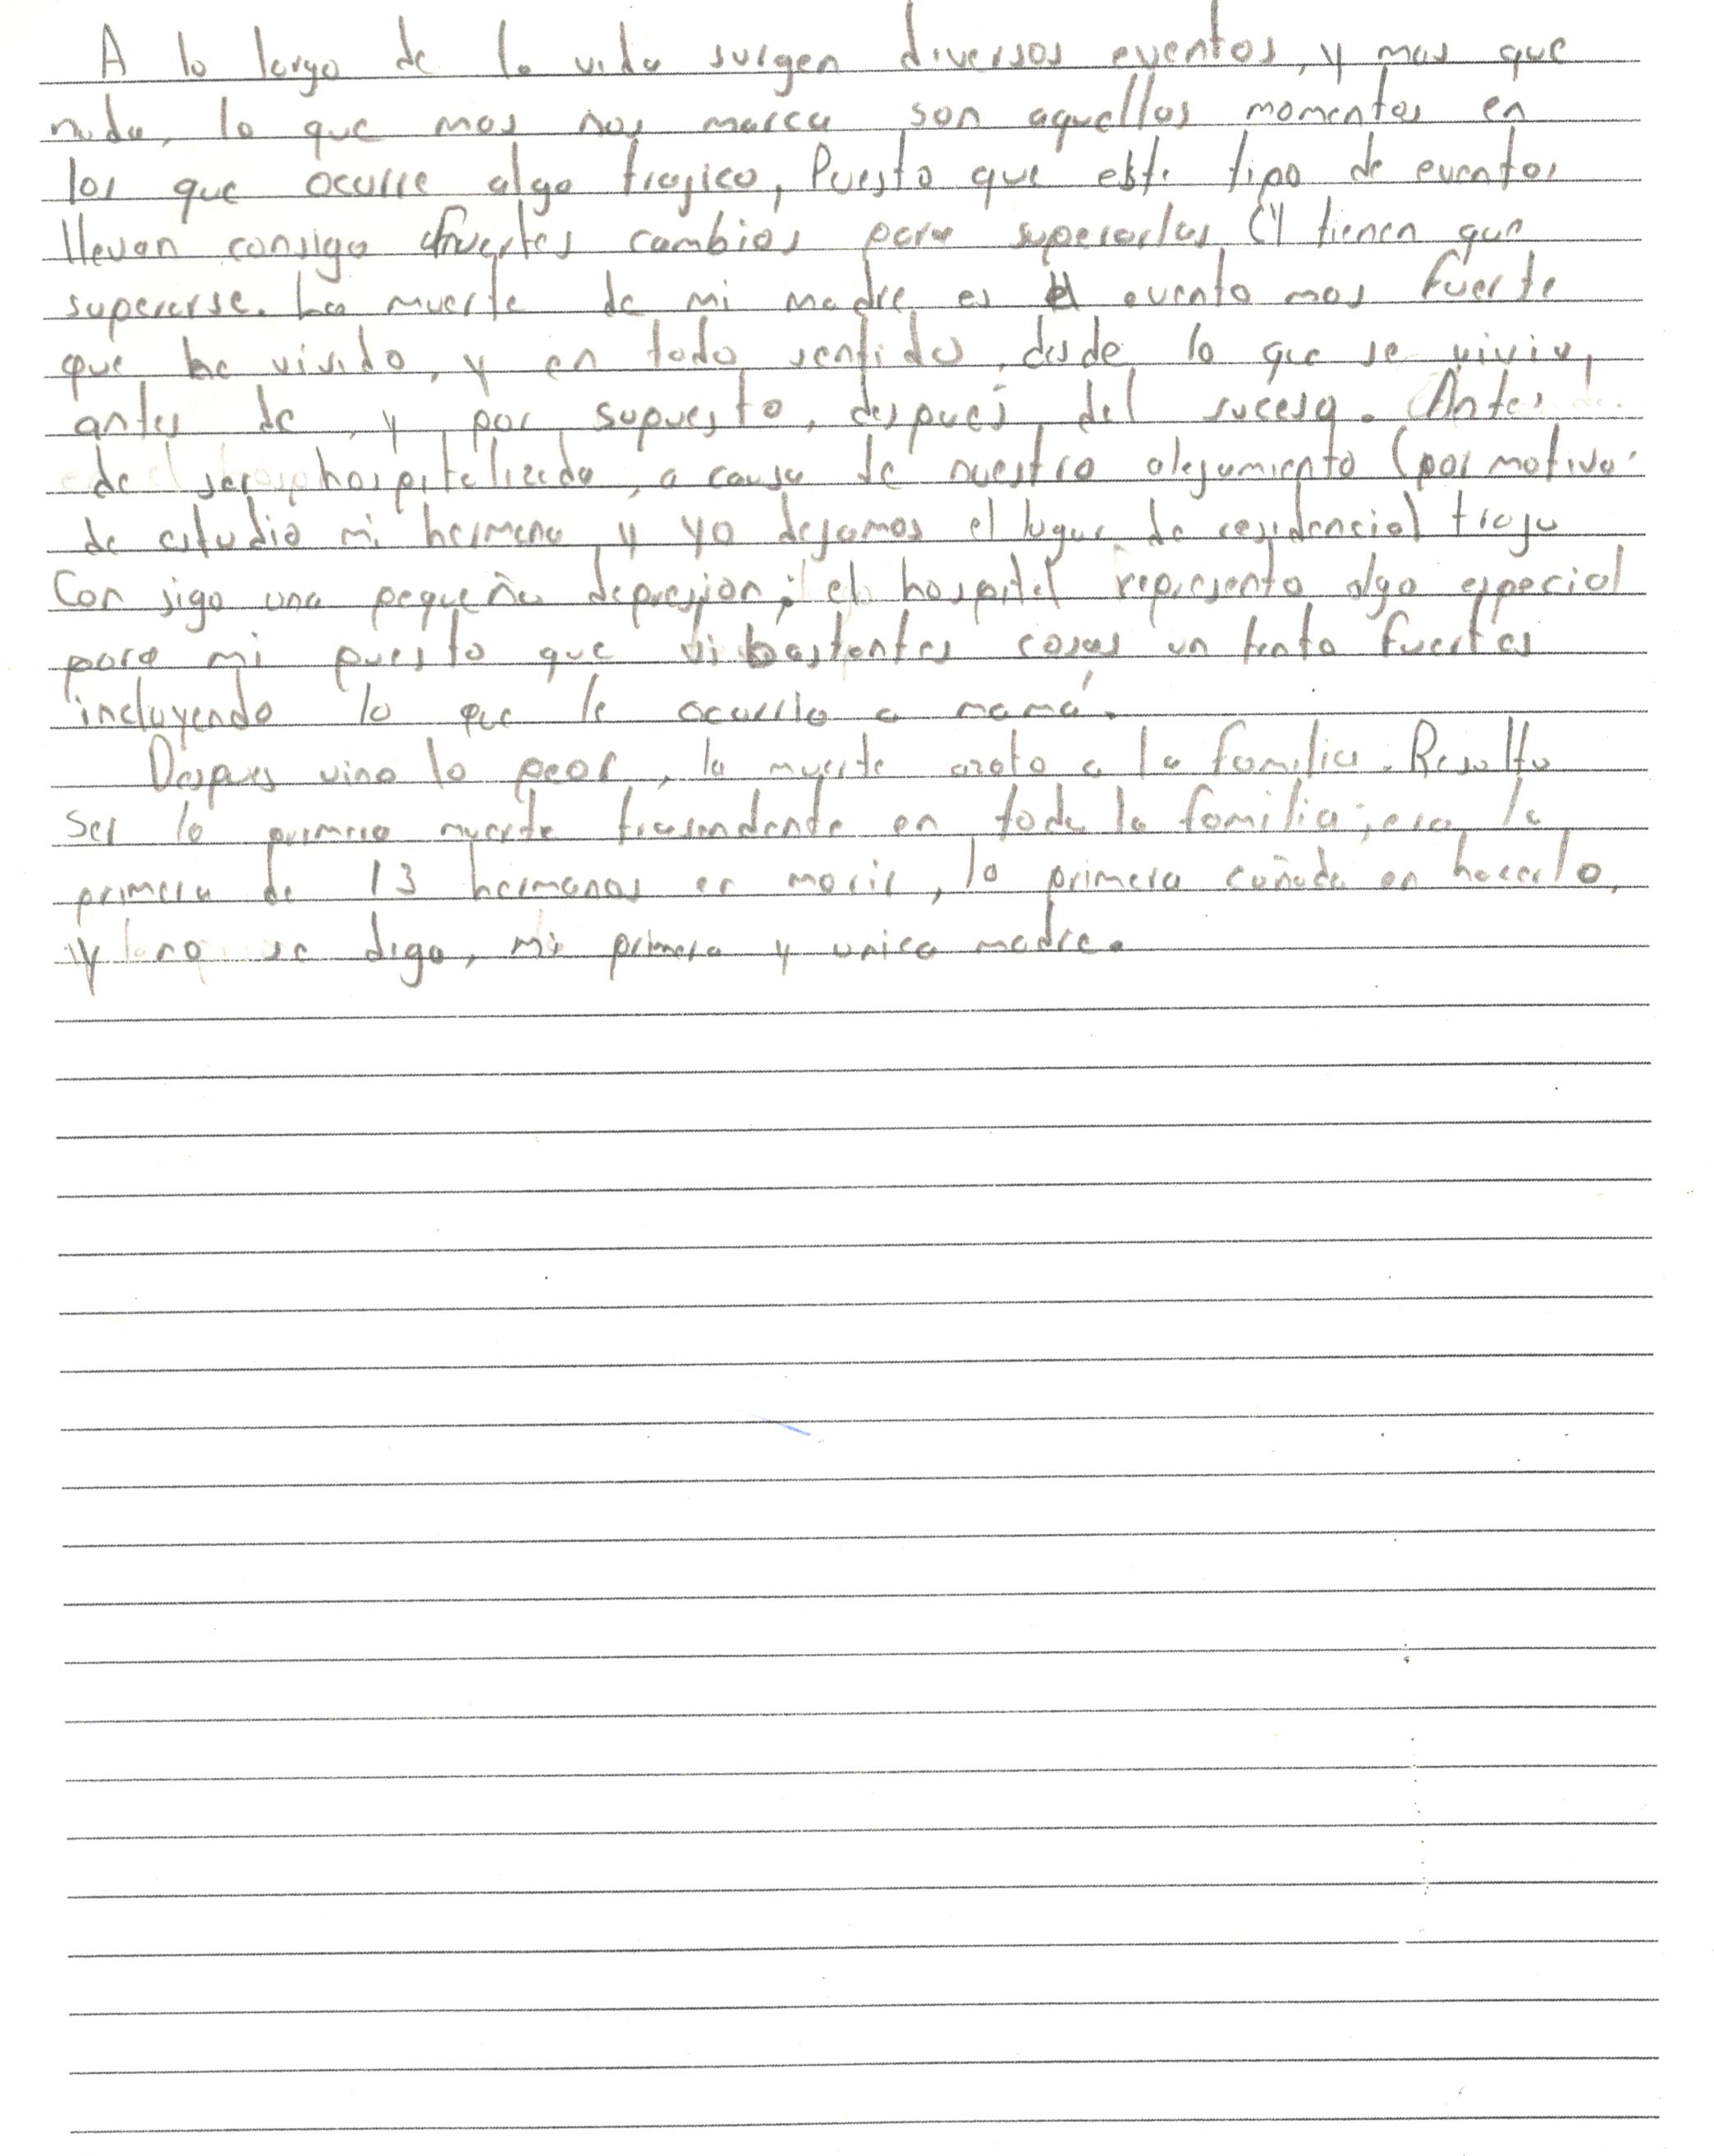 A lo largo de la vida surgen diversos eventos, y mas que
nada, lo que mas nos marca son aquellos momentos en
los que ocurre algo tragico, Puesto que este tipo de eventos
llevan consigo fuertes cambios para superarlas, y tienen que
superarse. La muerte de mi madre es el evento mas fuerte
que he vivido, y en todo sentido, desde lo que se vivio,
antes de, y por supuesto, despues del suceso. Antes
de ser hospitalizada, a causa de nuestro alejamiento (por motivo
de estudio mi hermana y yo dejamos el lugar de residencia) trajo
Con sigo una pequeña depresion; el hospital represento algo especial
para mi puesto que vi bastantes cosas un tanto fuertes
incluyendo lo que le ocurrio a mamá.
Despues vino lo peor, la muerte azoto a la familia. Resulto
ser la primera muerte trasendente en toda la familia; era la
primera de 13 hermanos en morir, la primera cuñada en hacerlo,
y no se diga, mi primera y unica madre.